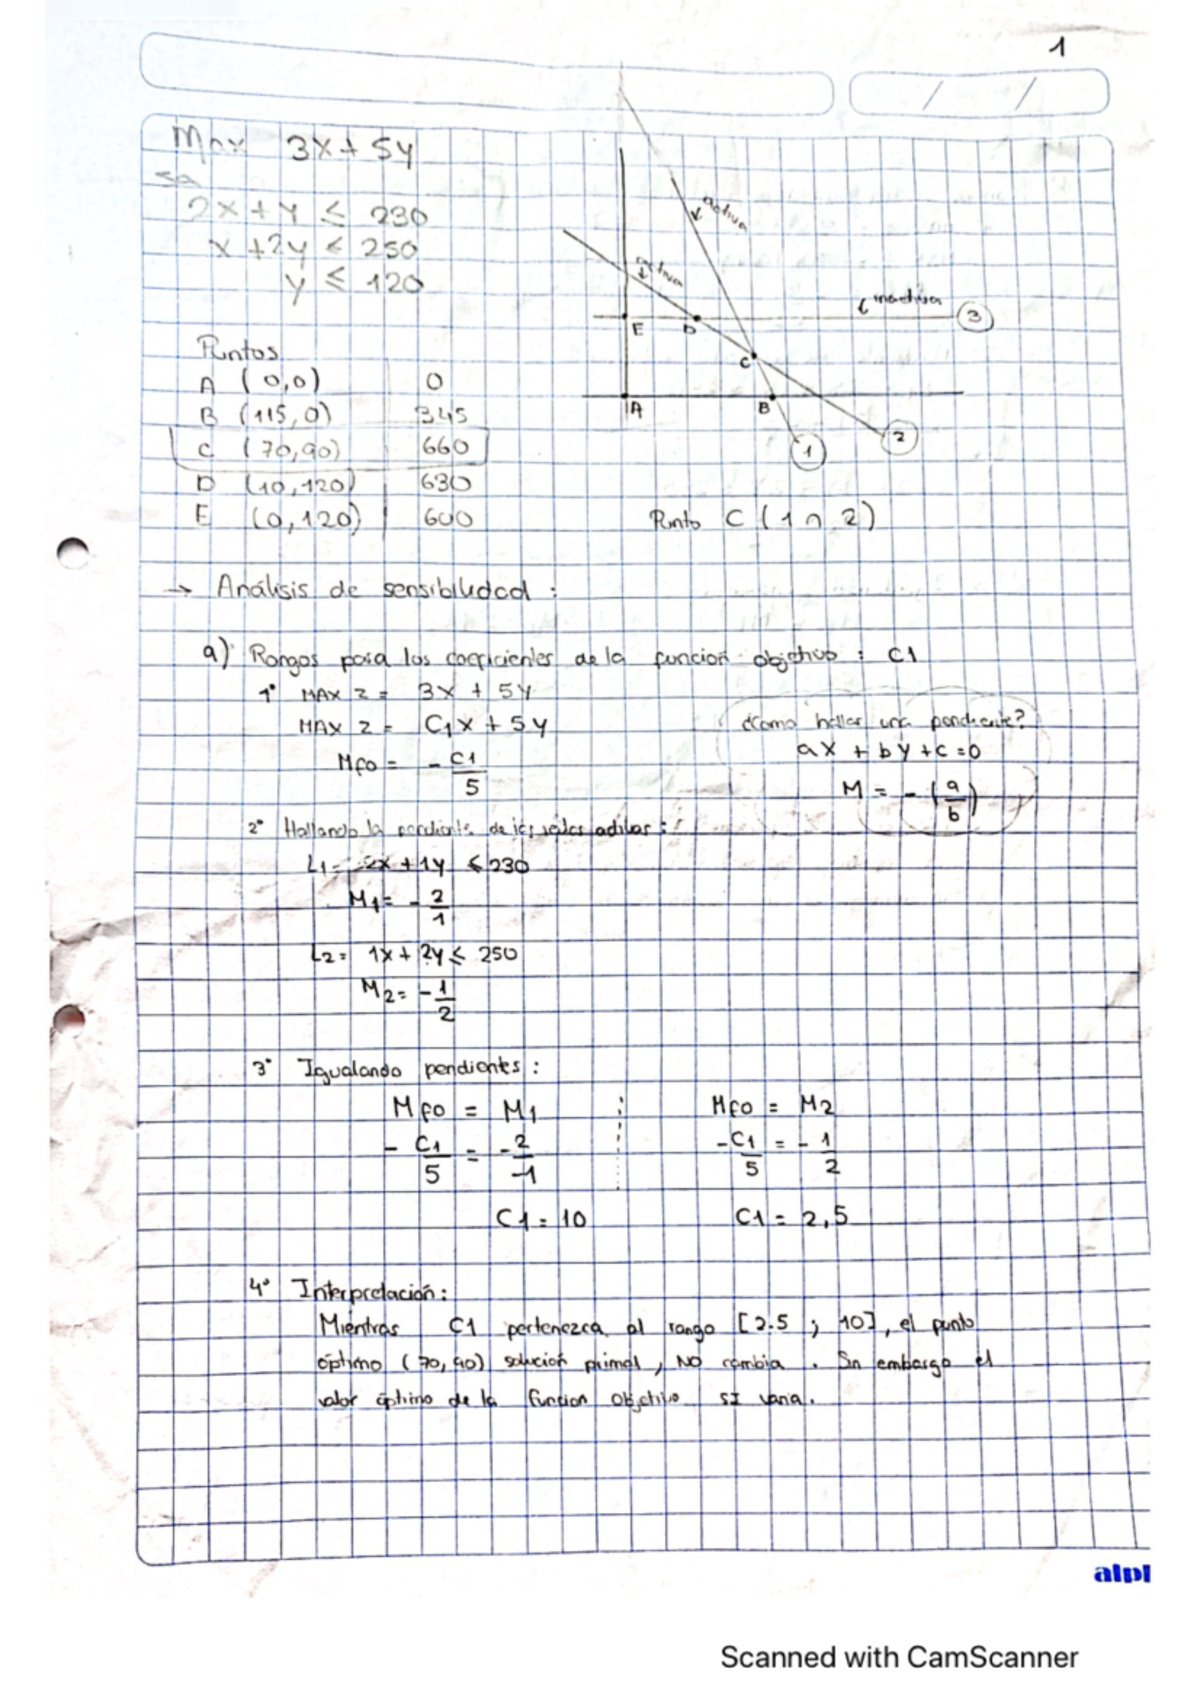 1
Max 3x + 5y
sa
2x + y ≤ 230
x + 2y ≤ 250
y ≤ 120
activa
activa
inactiva
3
E D
C
A B
1
2
Puntos
A (0,0) 0
B (115,0) 345
C (70,90) 660
D (10,120) 630
E (0,120) 600
Punto C (1 ∩ 2)
→ Análisis de sensibilidad :
a) Rangos para los coeficientes de la función objetivo : C1
1° MAX Z = 3x + 5y
MAX Z = C1x + 5y
Mfo = - C1/5
¿Como hallar una pendiente?
ax + by + c = 0
M = - (a/b)
2° Hallando la pendiente de las rectas activas :
L1 = 2x + 1y ≤ 230
M1 = - 2/1
L2 = 1x + 2y ≤ 250
M2 = - 1/2
3° Igualando pendientes :
Mfo = M1 Mfo = M2
- C1/5 = - 2/1 - C1/5 = - 1/2
C1 = 10 C1 = 2,5
4° Interpretación :
Mientras C1 pertenezca al rango [2.5 ; 10], el punto
óptimo (70,90) solución primal, NO cambia. Sin embargo el
valor óptimo de la función objetivo SI varia.
alpl
Scanned with CamScanner